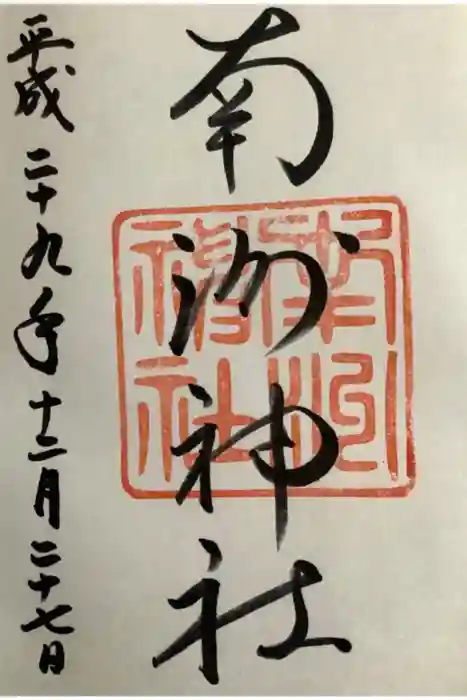 南洲神社
南洲神社
平成二十九年十二月二十七日